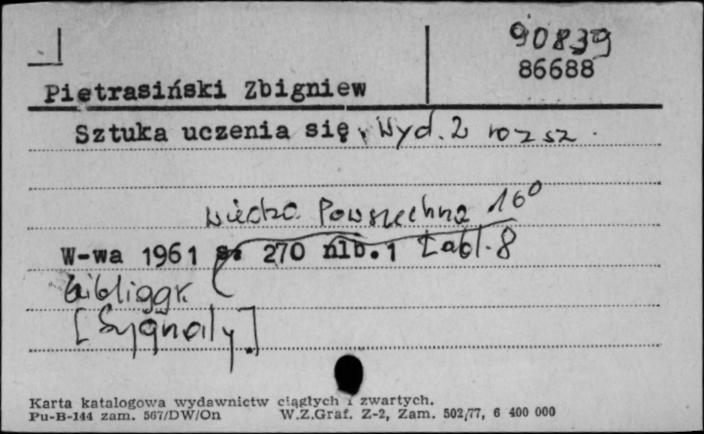 90839
86688
Pietrasiński Zbigniew
Sztuka uczenia się, Wyd. 2 rozsz.
Wiedza Powszechna 16⁰
W-wa 1961 s. 270 nlb.1 tabl. 8
bibliogr.
[Sygnały]
Karta katalogowa wydawnictw ciągłych i zwartych.
Pu-B-144 zam. 567/DW/On W.Z.Graf. Z-2, Zam. 502/77, 6 400 000